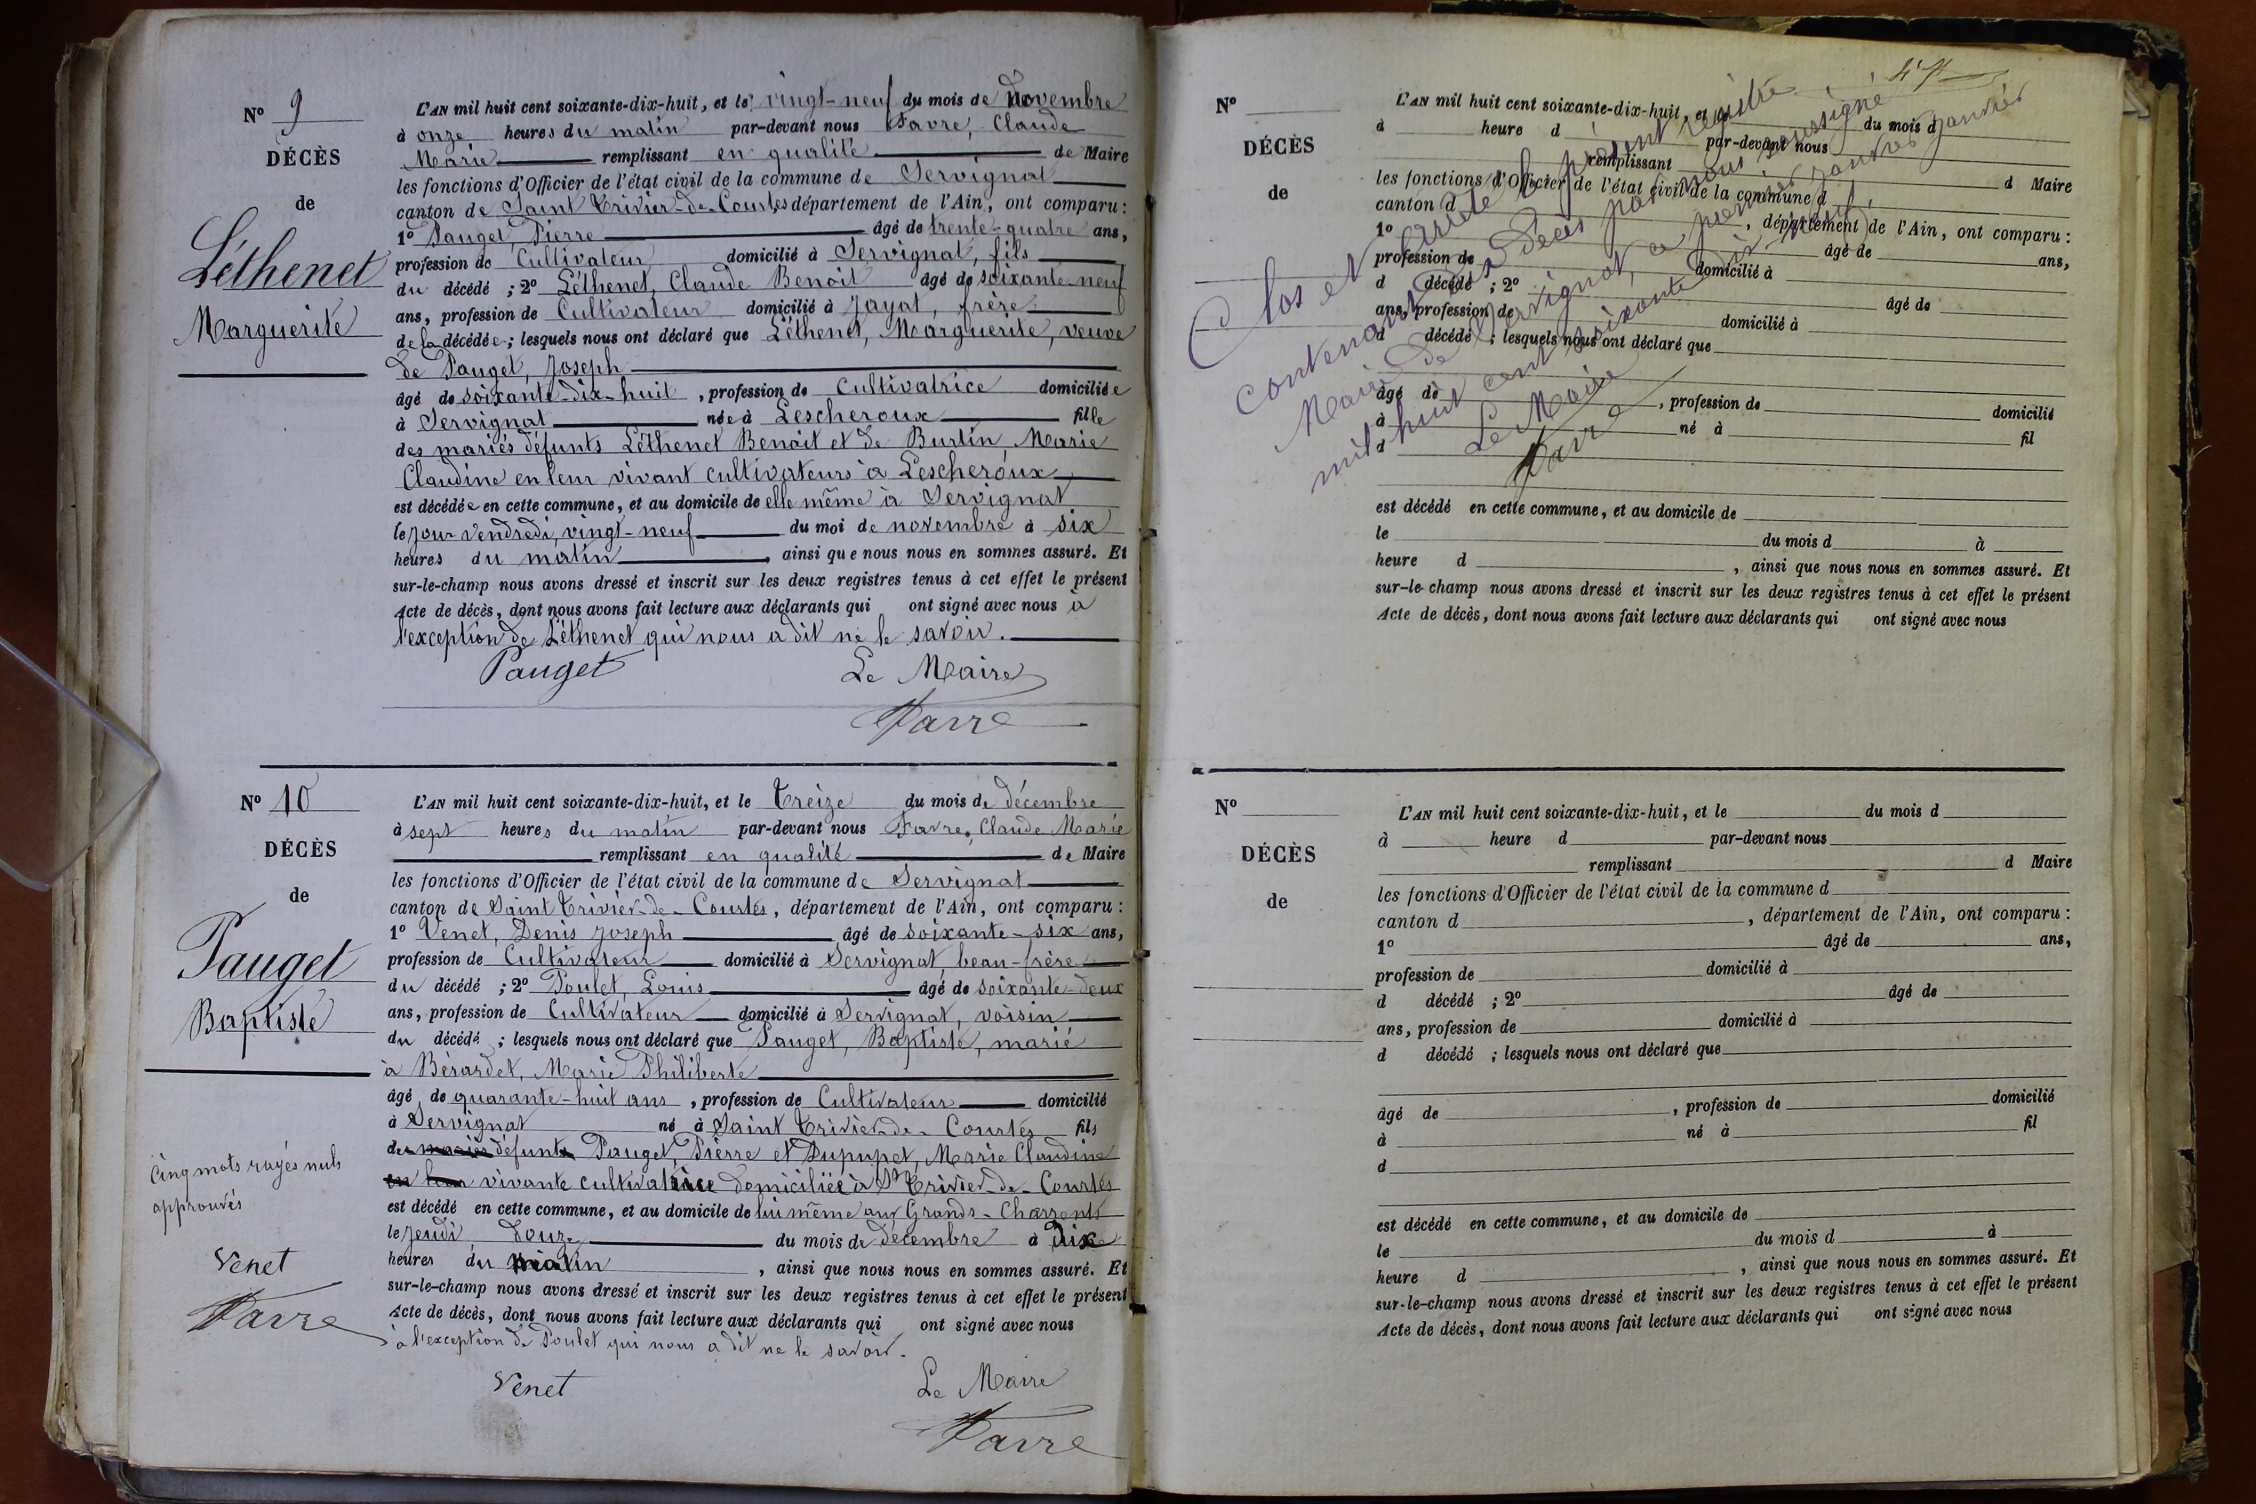 N° 9
DÉCÈS
de
Léthenet
Marguerite
L'AN mil huit cent soixante-dix-huit, et le vingt-neuf du mois de novembre
à onze heures du matin par-devant nous Favre, Claude
Marie remplissant en qualité de Maire
les fonctions d'Officier de l'état civil de la commune de Servignat
canton de Saint Trivier-de-Courtes, département de l'Ain, ont comparu :
1° Pauget, Pierre âgé de trente-quatre ans,
profession de Cultivateur domicilié à Servignat, fils
du décédé ; 2° Léthenet, Claude Benoit âgé de soixante-neuf
ans, profession de Cultivateur domicilié à Jayat, frère
de la décédée ; lesquels nous ont déclaré que Léthenet, Marguerite, veuve
de Pauget, Joseph
âgé de soixante-dix-huit , profession de Cultivatrice domiciliée
à Servignat née à Lescheroux fille
des mariés défunts Léthenet Benoit et de Burtin Marie
Claudine en leur vivant cultivateurs à Lescheroux
est décédée en cette commune, et au domicile de elle même à Servignat
le jour vendredi, vingt-neuf du moi de novembre à six
heures du matin , ainsi que nous nous en sommes assuré. Et
sur-le-champ nous avons dressé et inscrit sur les deux registres tenus à cet effet le présent
Acte de décès, dont nous avons fait lecture aux déclarants qui ont signé avec nous à
l'exception de Léthenet qui nous a dit ne le savoir.
Pauget Le Maire
Favre
N° 10
DÉCÈS
de
Pauget
Baptiste
L'AN mil huit cent soixante-dix-huit, et le treize du mois de décembre
à sept heures du matin par-devant nous Favre, Claude Marie
remplissant en qualité de Maire
les fonctions d'Officier de l'état civil de la commune de Servignat
canton de Saint Trivier-de-Courtes, département de l'Ain, ont comparu :
1° Venet, Denis Joseph âgé de soixante-six ans,
profession de Cultivateur domicilié à Servignat, beau-frère
du décédé ; 2° Poulet, Louis âgé de soixante-deux
ans, profession de Cultivateur domicilié à Servignat, voisin
du décédé ; lesquels nous ont déclaré que Pauget, Baptiste, marié
à Bérardet, Marie Philiberte
âgé de quarante-huit ans , profession de Cultivateur domicilié
à Servignat né à Saint Trivier-de-Courtes fils
de mariés défunt Pauget, Pierre et Dupupet, Marie Claudine
en leur vivante cultivatrice domiciliée à St Trivier-de-Courtes
est décédé en cette commune, et au domicile de lui même aux Grands-Charronts
le jeudi douze du mois de décembre à dix
heures du matin , ainsi que nous nous en sommes assuré. Et
sur-le-champ nous avons dressé et inscrit sur les deux registres tenus à cet effet le présent
Acte de décès, dont nous avons fait lecture aux déclarants qui ont signé avec nous
à l'exception de Poulet qui nous a dit ne le savoir.
Venet Le Maire
Favre
Cinq mots rayés nuls
approuvés
Venet
Favre
N°
DÉCÈS
de
L'AN mil huit cent soixante-dix-huit, et le du mois d
à heure d par-devant nous
remplissant d Maire
les fonctions d'Officier de l'état civil de la commune d
canton d , département de l'Ain, ont comparu :
1° âgé de ans,
profession de domicilié à
d décédé ; 2° âgé de
ans, profession de domicilié à
d décédé ; lesquels nous ont déclaré que
âgé de , profession de domicilié
à né à fil
d
est décédé en cette commune, et au domicile de
le du mois d à
heure d , ainsi que nous nous en sommes assuré. Et
sur-le-champ nous avons dressé et inscrit sur les deux registres tenus à cet effet le présent
Acte de décès, dont nous avons fait lecture aux déclarants qui ont signé avec nous
Clos et arrêté le présent registre
contenant dix décès par nous soussigné
Maire de Servignat, ce premier janvier
mil huit cent soixante dix-neuf
Le Maire
Favre
N°
DÉCÈS
de
L'AN mil huit cent soixante-dix-huit, et le du mois d
à heure d par-devant nous
remplissant d Maire
les fonctions d'Officier de l'état civil de la commune d
canton d , département de l'Ain, ont comparu :
1° âgé de ans,
profession de domicilié à
d décédé ; 2° âgé de
ans, profession de domicilié à
d décédé ; lesquels nous ont déclaré que
âgé de , profession de domicilié
à né à fil
d
est décédé en cette commune, et au domicile de
le du mois d à
heure d , ainsi que nous nous en sommes assuré. Et
sur-le-champ nous avons dressé et inscrit sur les deux registres tenus à cet effet le présent
Acte de décès, dont nous avons fait lecture aux déclarants qui ont signé avec nous